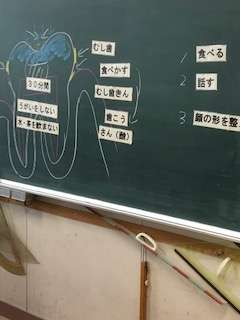 むし歯
食べかす
むし歯きん
歯こう
さん(酸)
30分間
うがいをしない
水・茶を飲まない
1 食べる
2 話す
3 顔の形を整